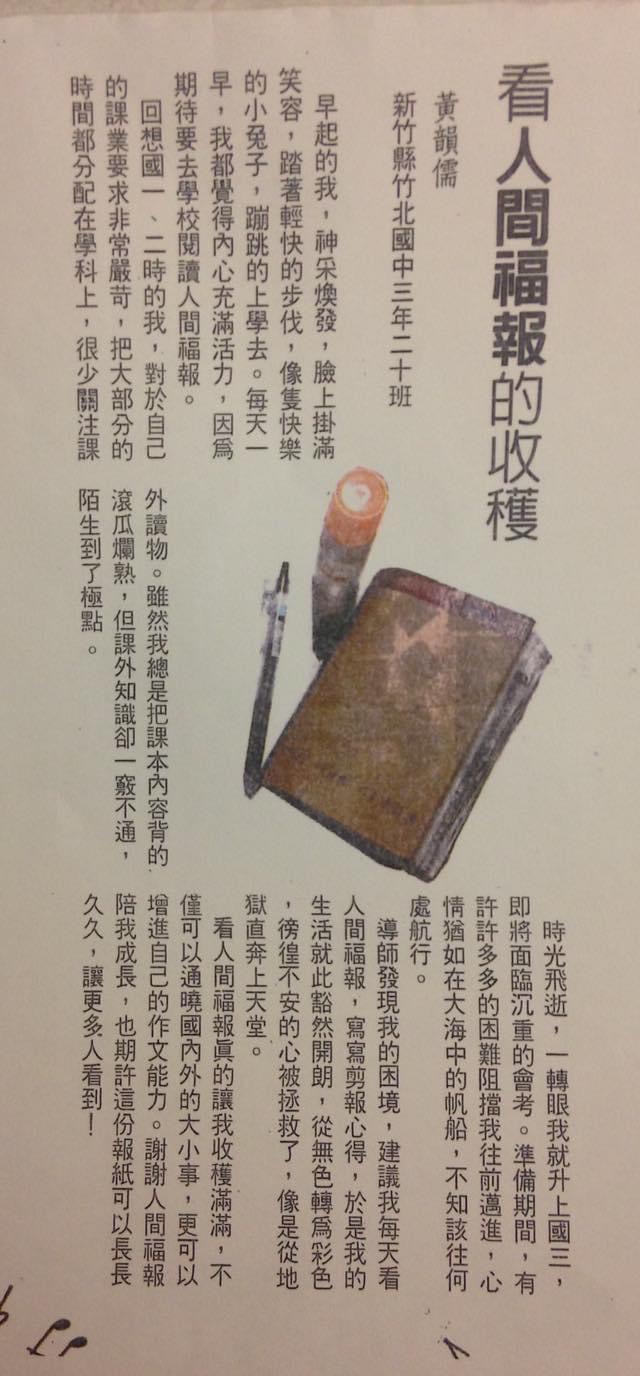 看人間福報的收穫
黃韻儒
新竹縣竹北國中三年二十班
早起的我，神采煥發，臉上掛滿
笑容，踏著輕快的步伐，像隻快樂
的小兔子，蹦跳的上學去。每天一
早，我都覺得內心充滿活力，因為
期待要去學校閱讀人間福報。
回想國一、二時的我，對於自己
的課業要求非常嚴苛，把大部分的
時間都分配在學科上，很少關注課
外讀物。雖然我總是把課本內容背的
滾瓜爛熟，但課外知識卻一竅不通，
陌生到了極點。
時光飛逝，一轉眼我就升上國三，
即將面臨沉重的會考。準備期間，有
許許多多的困難阻擋我往前邁進，心
情猶如在大海中的帆船，不知該往何
處航行。
導師發現我的困境，建議我每天看
人間福報，寫寫剪報心得，於是我的
生活就此豁然開朗，從無色轉為彩色
，徬徨不安的心被拯救了，像是從地
獄直奔上天堂。
看人間福報真的讓我收穫滿滿，不
僅可以通曉國內外的大小事，更可以
增進自己的作文能力。謝謝人間福報
陪我成長，也期許這份報紙可以長長
久久，讓更多人看到！